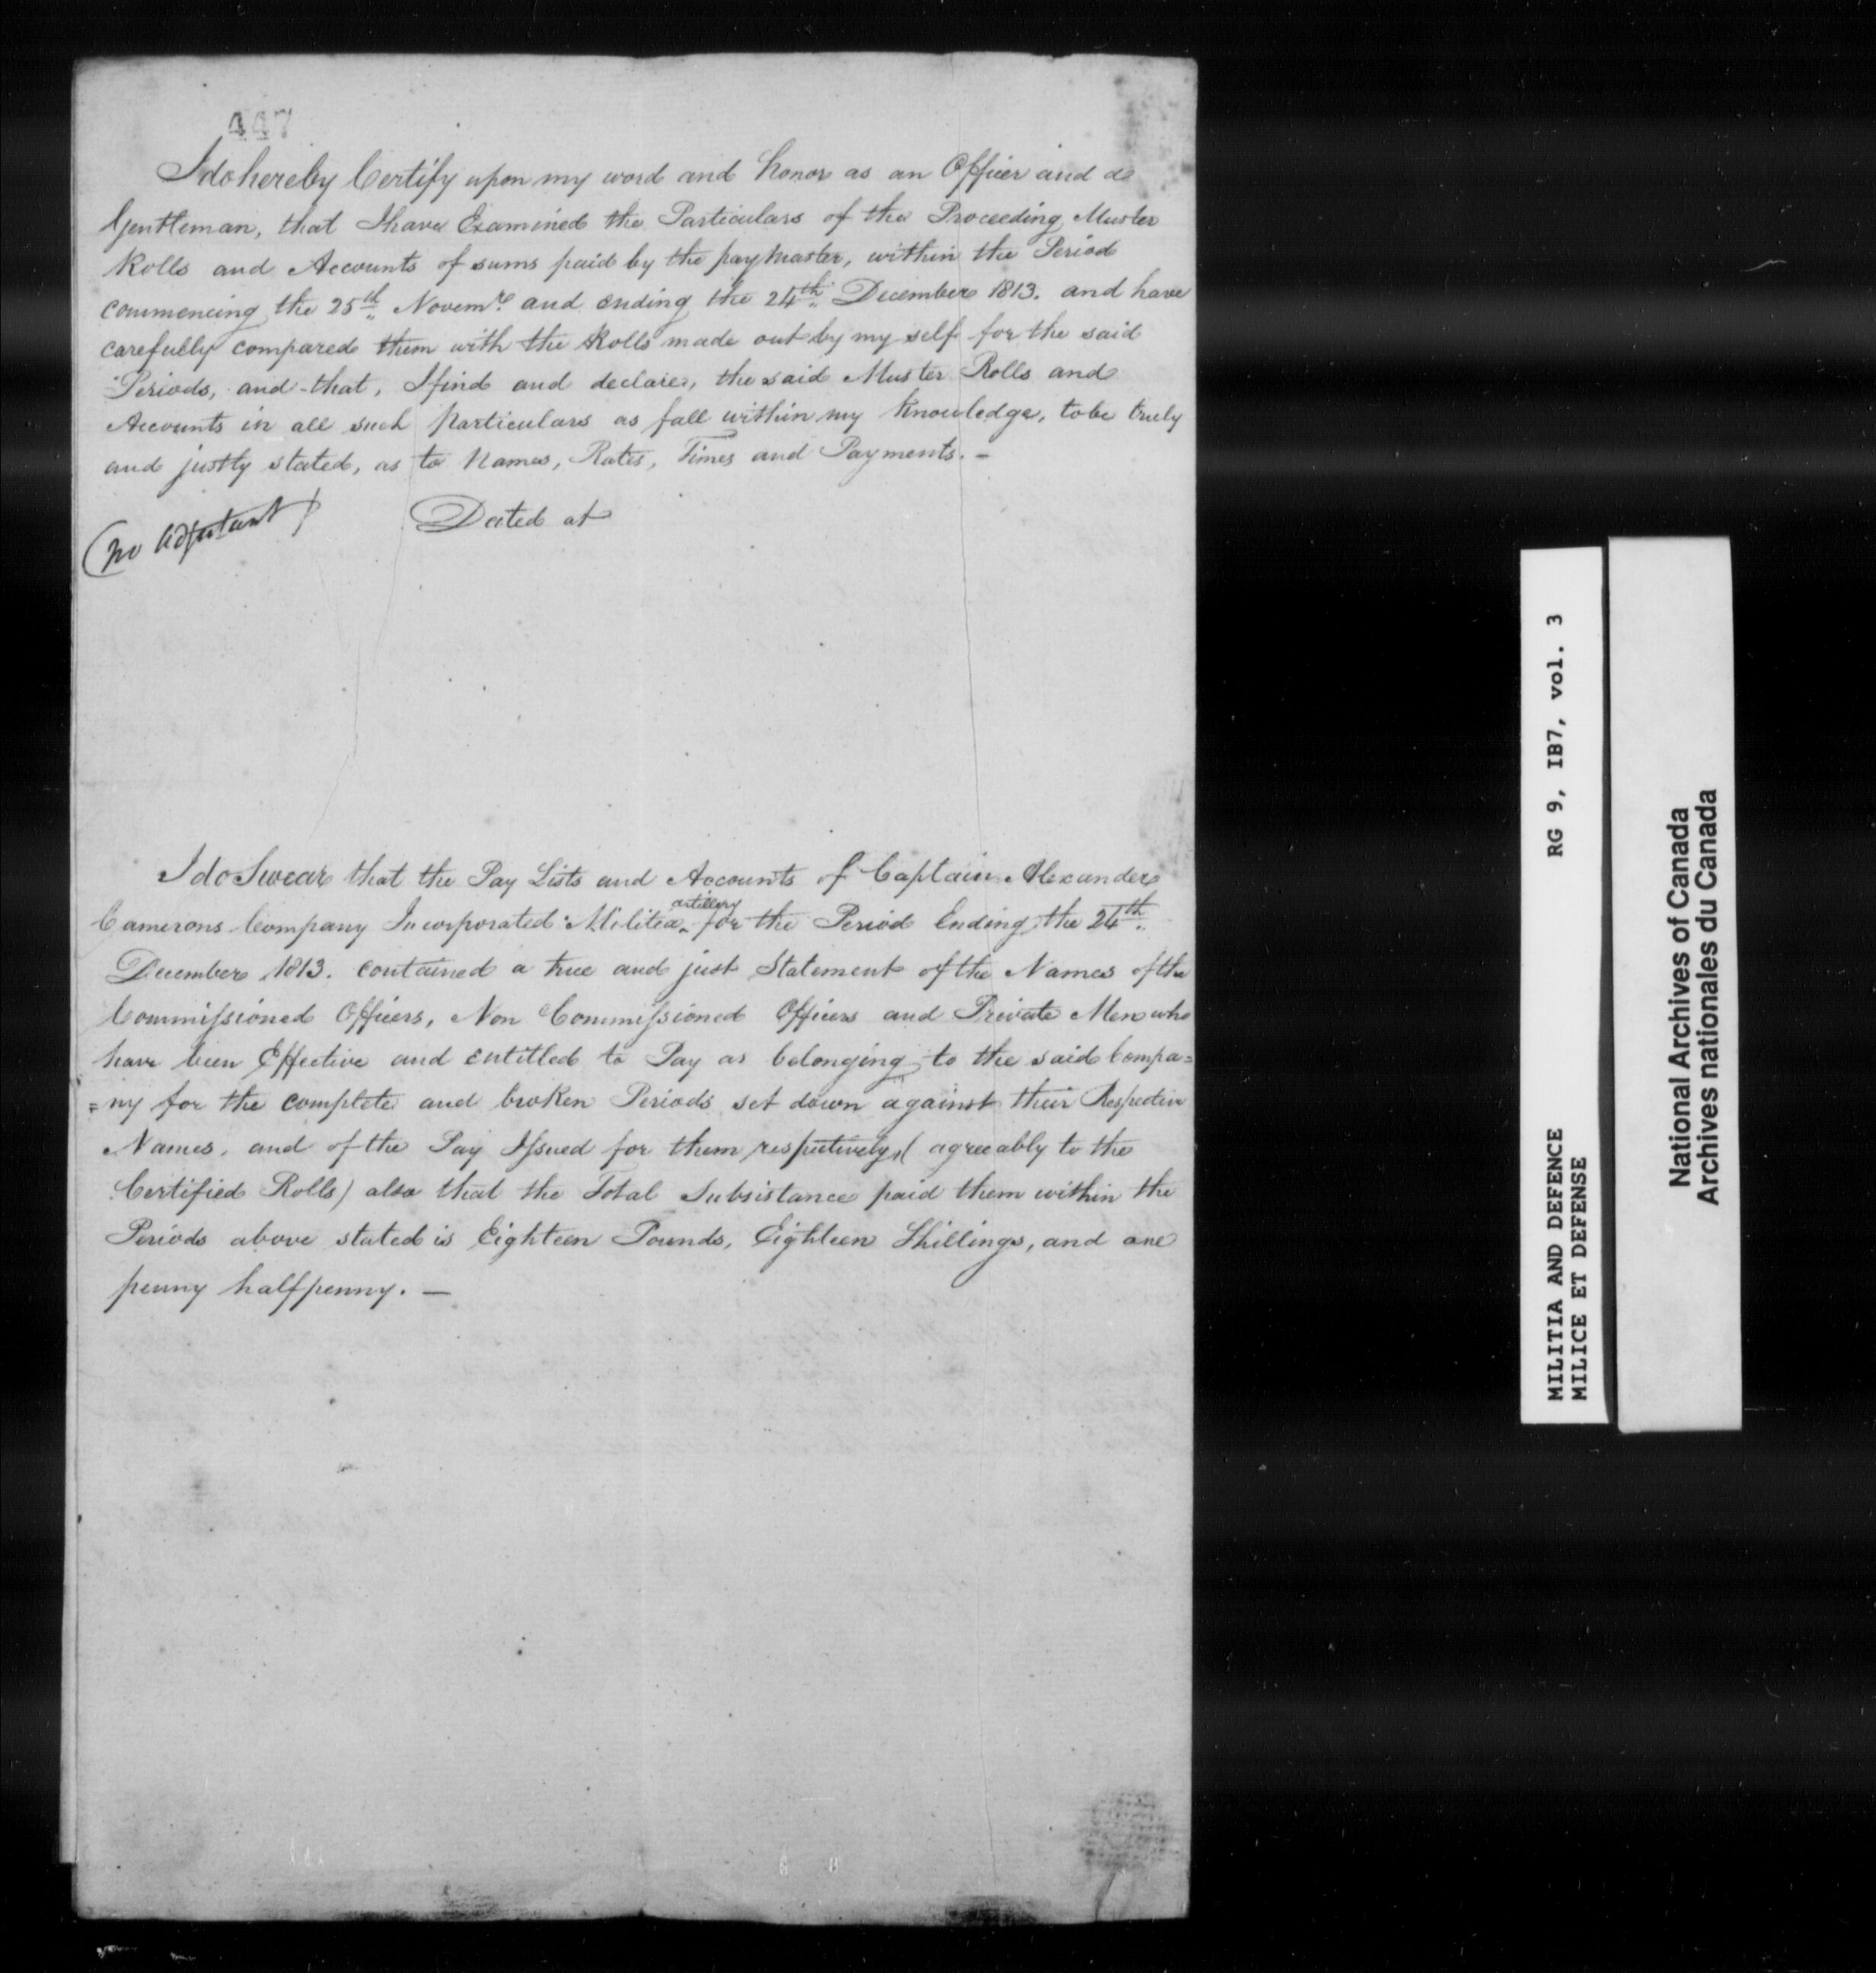 447
I do hereby Certify upon my word and honor as an Officer and a
Gentleman, that I have Examined the Particulars of the Proceeding Muster
Rolls and Accounts of sums paid by the paymaster, within the Period
commencing the 25th Novemre and ending the 24th December 1813. and have
carefully compared them with the Rolls made out by my self for the said
Periods, and that, I find and declare, the said Muster Rolls and
Accounts in all such particulars as fall within my knowledge, to be truly
and justly stated, as to Names, Rates, Times and Payments. -
(no adjutant)
Dated at
I do Swear that the Pay Lists and Accounts of Captain Alexander
artillery
Camerons Company Incorporated Militia ‸ for the Period Ending the 24th
December 1813. contained a true and just Statement of the Names of the
Commissioned Officers, Non Commissioned Officers and Private Men who
have been Effective and entitled to Pay as belonging to the said Compa=
=ny for the complete and broken Periods set down against their Respective
Names, and of the Pay Issued for them respectively, (agreeably to the
Certified Rolls) also that the Total Subsistance paid them within the
Periods above stated is Eighteen Pounds, Eighteen Shillings, and one
penny halfpenny. —
MILITIA AND DEFENCE RG 9, IB7, vol. 3
MILICE ET DEFENSE
National Archives of Canada
Archives nationales du Canada